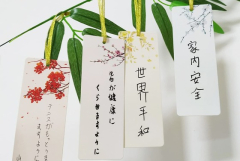 家内安全
世界平和
が健康に
くらせますように
ますように